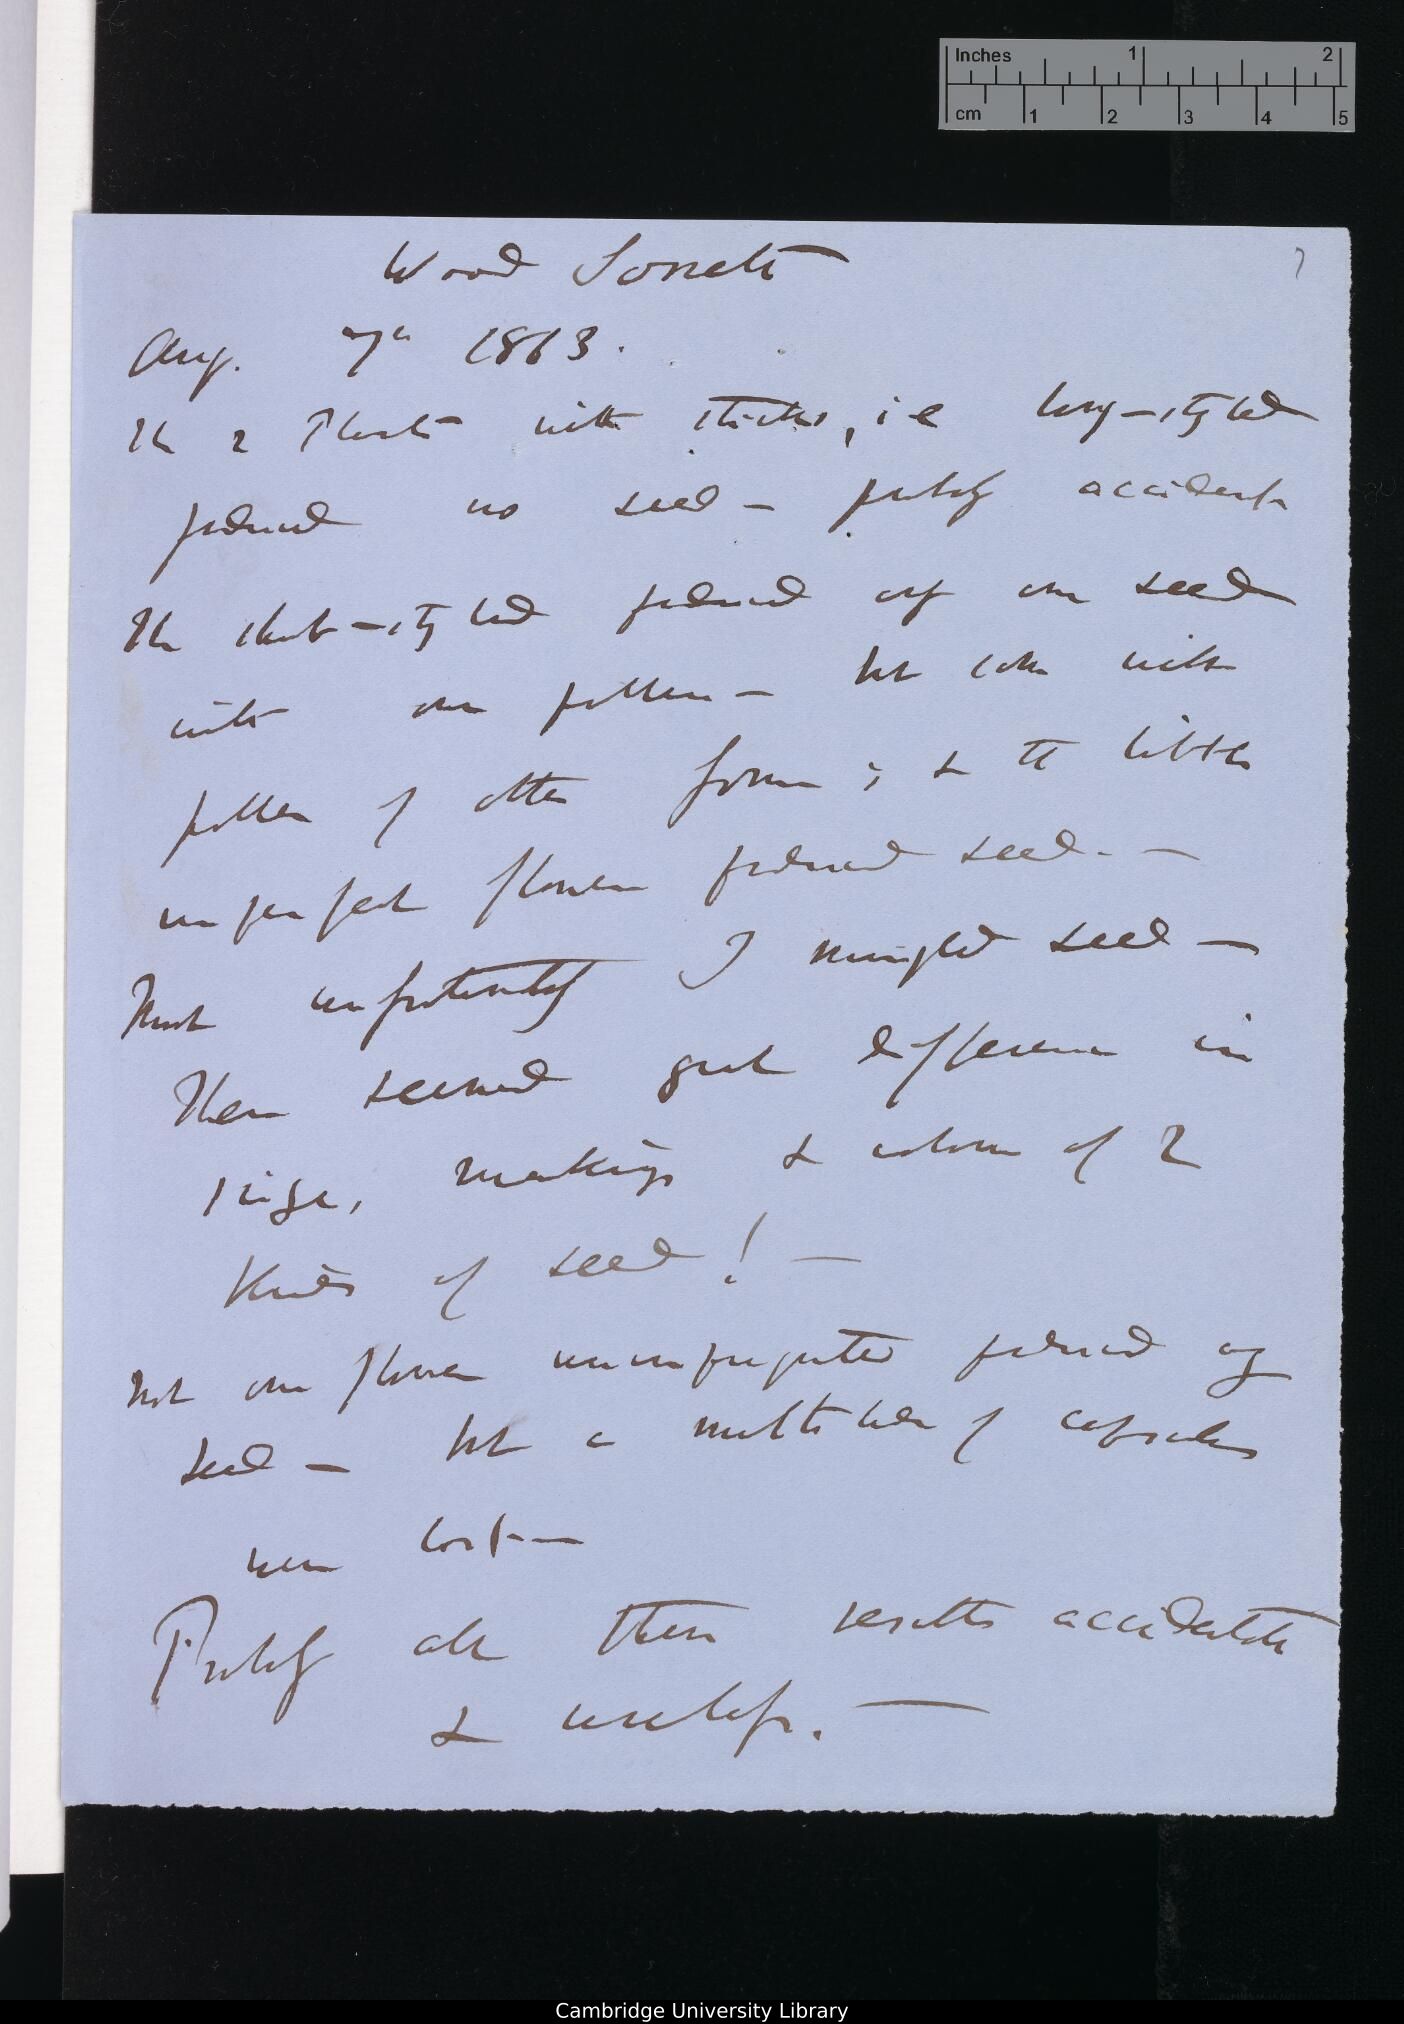 Inches 1 2
cm 1 2 3 4 5
7
Wood Sorrell
Aug. 7th 1863.
The 2 Plants with sticks, i.e. long-styled
produced no seed — probably accident
The short-styled produced only one seed
with own pollen — but some with
pollen of other form; & the little
imperfect flowers produced seed. —
Most unfortunately I mingled seed —
There seemed great difference in
size, markings & colour of 2
kinds of seed! —
Not one flower unimpregnated produced any
seed — but a multitude of capsules
were lost —
Probably all these results accidental
& worthless. —
Cambridge University Library